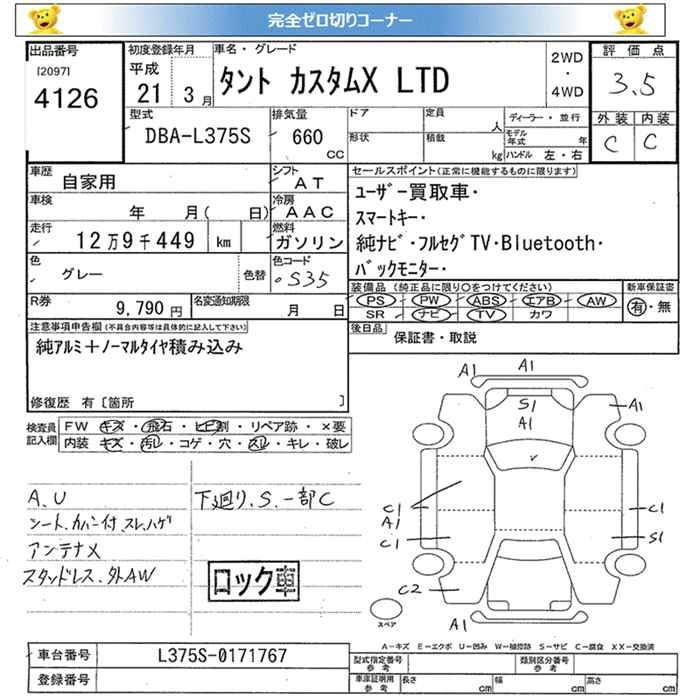 完全ゼロ切りコーナー
出品番号
[2097]
4126
初度登録年月
平成
21 3月
車名・グレード
タント カスタムX LTD
2WD
・
4WD
評価点
3.5
外装 内装
C C
型式
DBA-L375S
排気量
660
CC
ドア
形状
定員
人
積載
kg
ディーラー・並行
モデル年式
年
ハンドル 左・右
車歴
自家用
シフト
AT
車検
年 月( 日)
冷房
AAC
走行
12万9千449 km
燃料
ガソリン
色
グレー
色替
色コード
S35
R券
9,790円
名変通知期限
月 日
セールスポイント(正常に機能するものに限ります)
ユーザー買取車・
スマートキー・
純ナビ・フルセグTV・Bluetooth・
バックモニター・
装備品 (純正品に限り○をつけてください)
PS PW ABS エアB AW
SR ナビ TV カワ
新車保証書
有・無
後日品
保証書・取説
注意事項申告欄(不具合内容等は具体的に記入して下さい)
純アルミ+ノーマルタイヤ積み込み
修復歴 有〔箇所 〕
検査員
記入欄
FW キズ・飛石・ヒビ割・リペア跡・×要
内装 キズ・汚レ・コゲ・穴・スレ・キレ・破レ
A.U
シート.カバー付.スレ.ハゲ
アンテナ✕
スタッドレス.外AW
下廻り.S.一部C
ロック車
A1
A1
S1
A1
A1
C1
A1
C1
C1
S1
C2
A1
スペア
A−キズ E−エクボ U−凹み W−補修跡 S−サビ C−腐食 XX−交換済
車台番号
L375S-0171767
登録番号
型式指定番号
参考
類別区分番号
参考
車庫証明用
参考
長さ
cm
幅
cm
高さ
cm